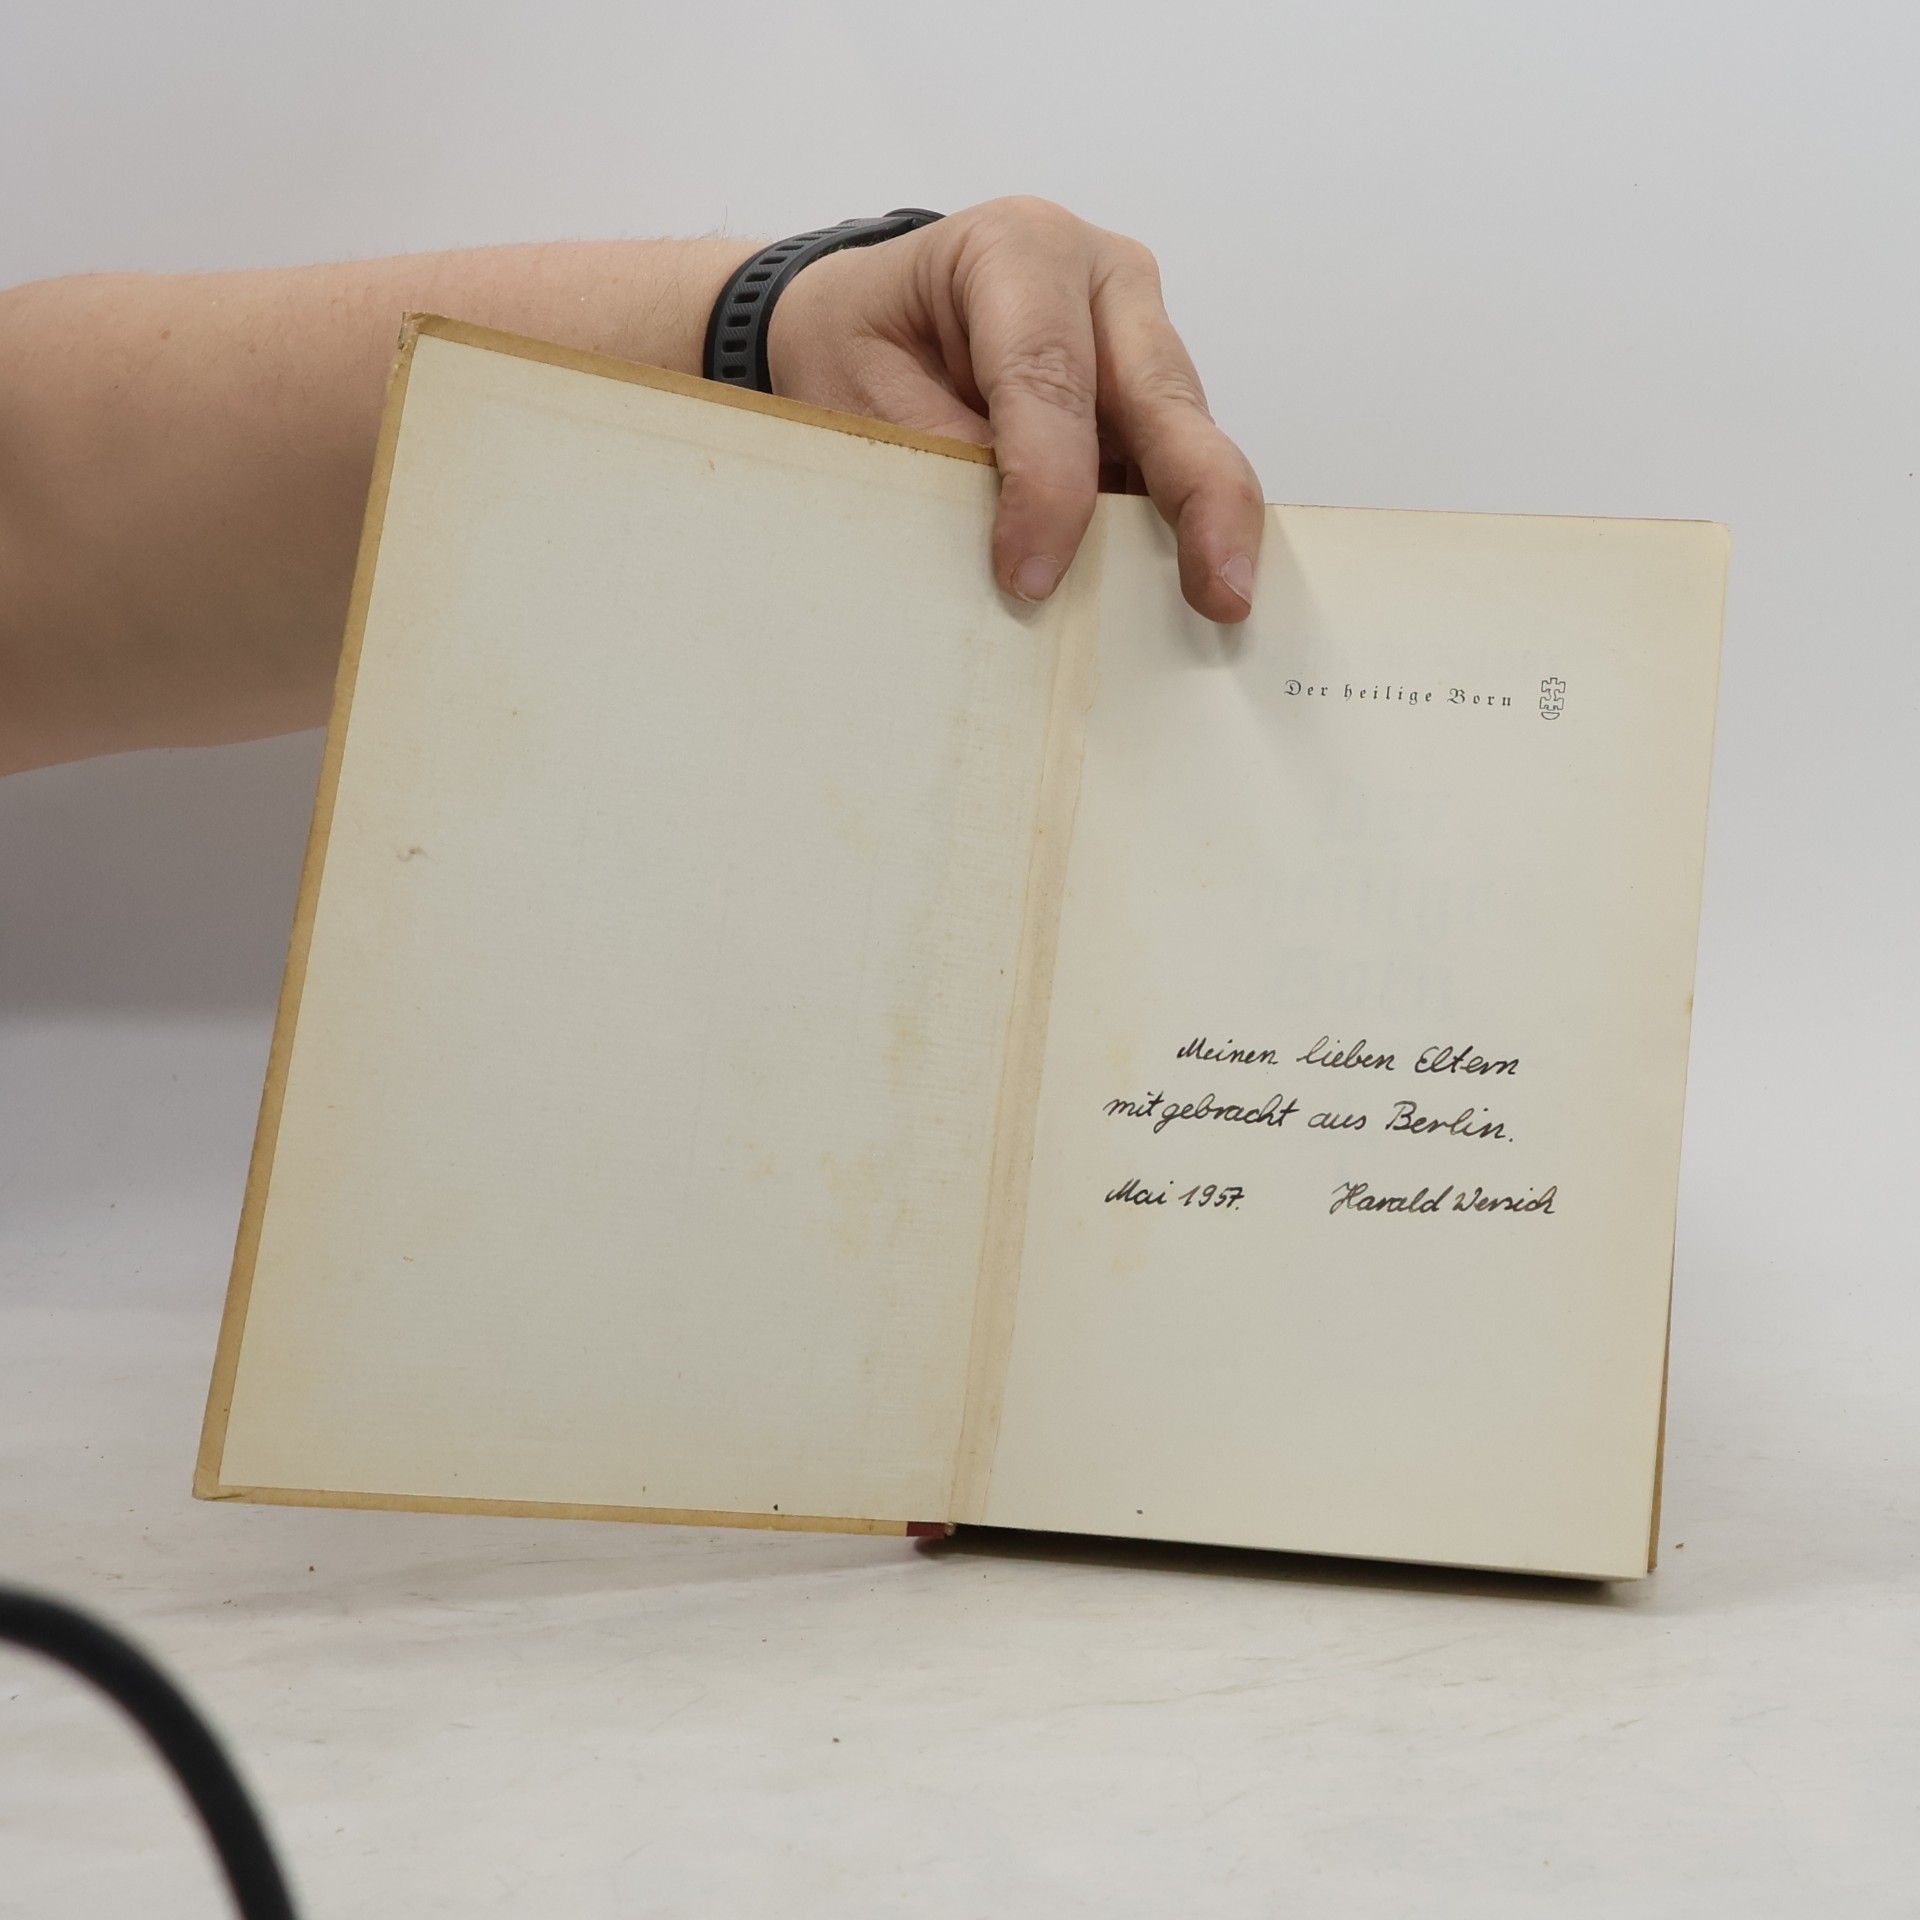 Der heilige Born
Meinen lieben Eltern
mitgebracht aus Berlin.
Mai 1957. Harald Wersich